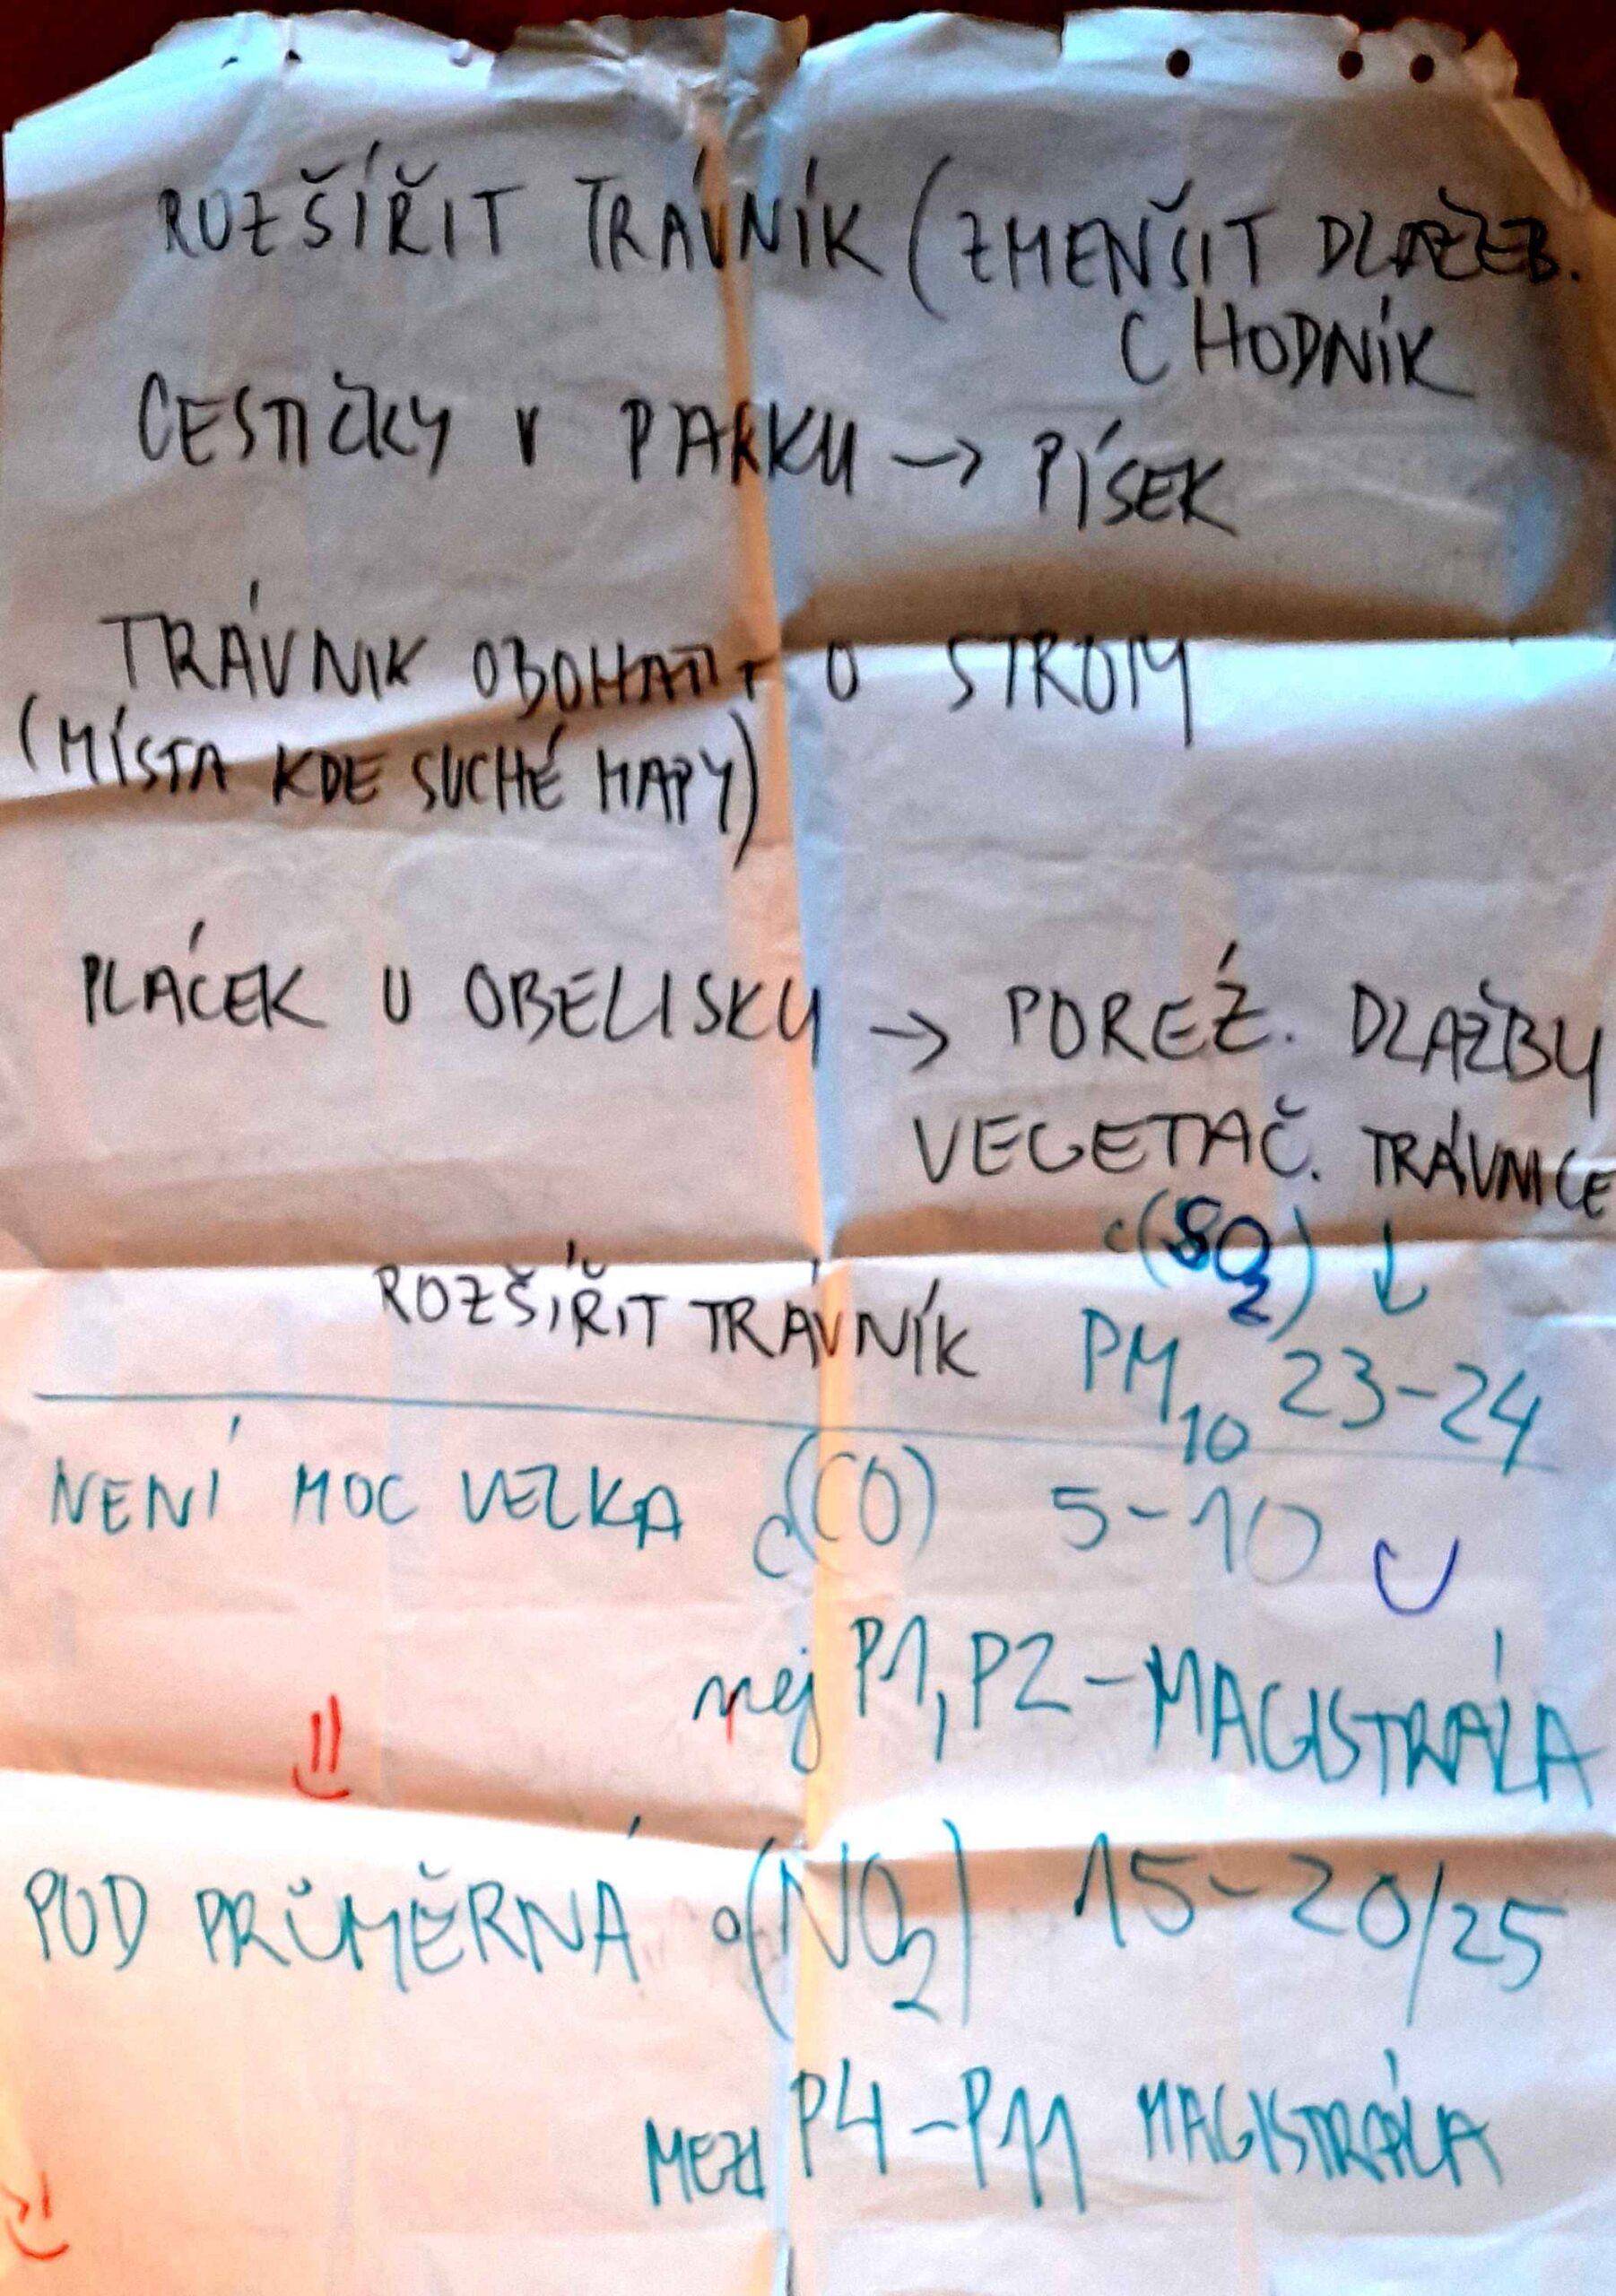 ROZŠÍŘIT TRÁVNÍK (ZMENŠIT DLAŽEB.
CHODNÍK
CESTIČKY V PARKU → PÍSEK
TRÁVNIK OBOHATIT O STROMY
(MÍSTA KDE SUCHÉ MAPY)
PLÁCEK U OBELISKU → POREŹ. DLAŽBY
VEGETAČ. TRÁVNICE
c(SO₂) ↓
ROZŠÍŘIT TRÁVNÍK PM₁₀ 23-24
NENÍ MOC VELKÁ c(CO) 5-10
nej P1, P2 - MAGISTRÁLA
POD PRŮMĚRNÁ c(NO₂) 15-20/25
MEZI P4-P11 MAGISTRÁLA